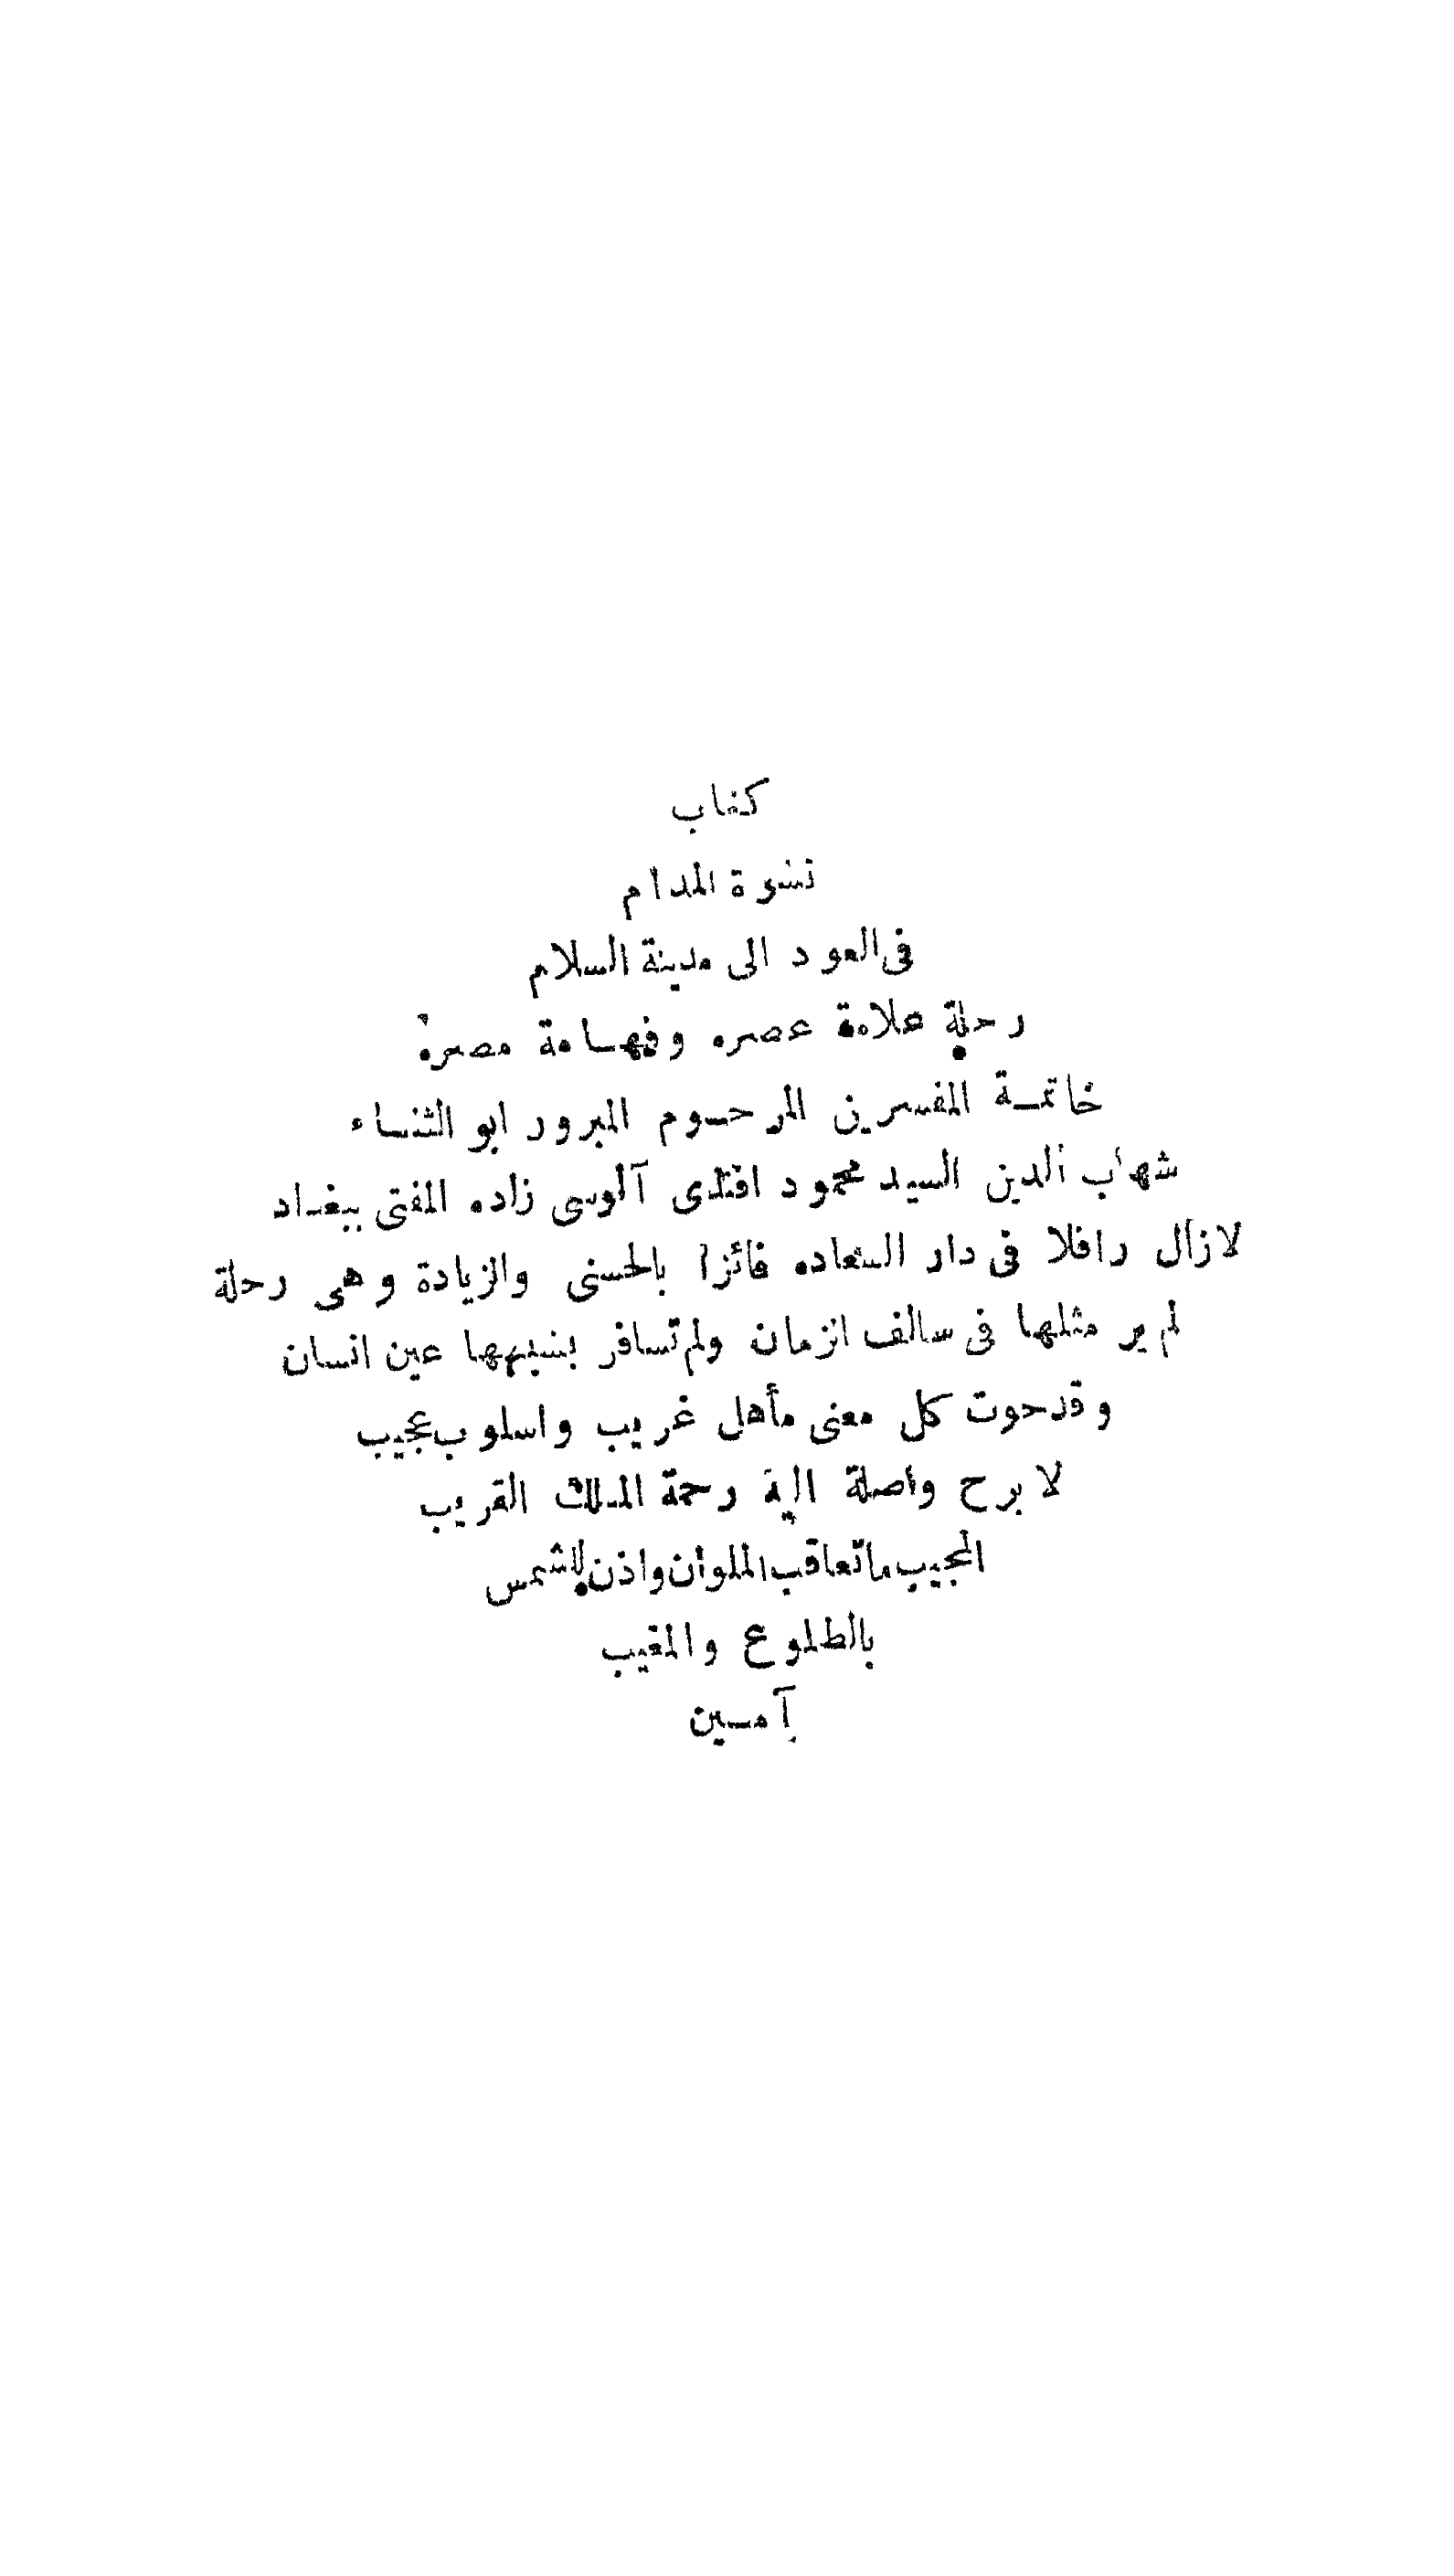 كتاب
نشوة المدام
فى العود الى مدينة السلام
رحلة علامة عصره وفهامة مصره
خاتمة المفسرين المرحوم المبرور ابو الثناء
شهاب الدين السيد محمود افندى آلوسى زاده المفتى ببغداد
لازال رافلا فى دار السعاده فائزا بالحسنى والزيادة وهى رحلة
لم ير مثلها فى سالف الزمان ولم تسافر بشبيهها عين انسان
وقد حوت كل معنى مأهل غريب واسلوب عجيب
لا برح واصلة اليه رحمة الملك القريب
المجيب ماتعاقب الملوان واذن للشمس
بالطلوع والمغيب
آمين